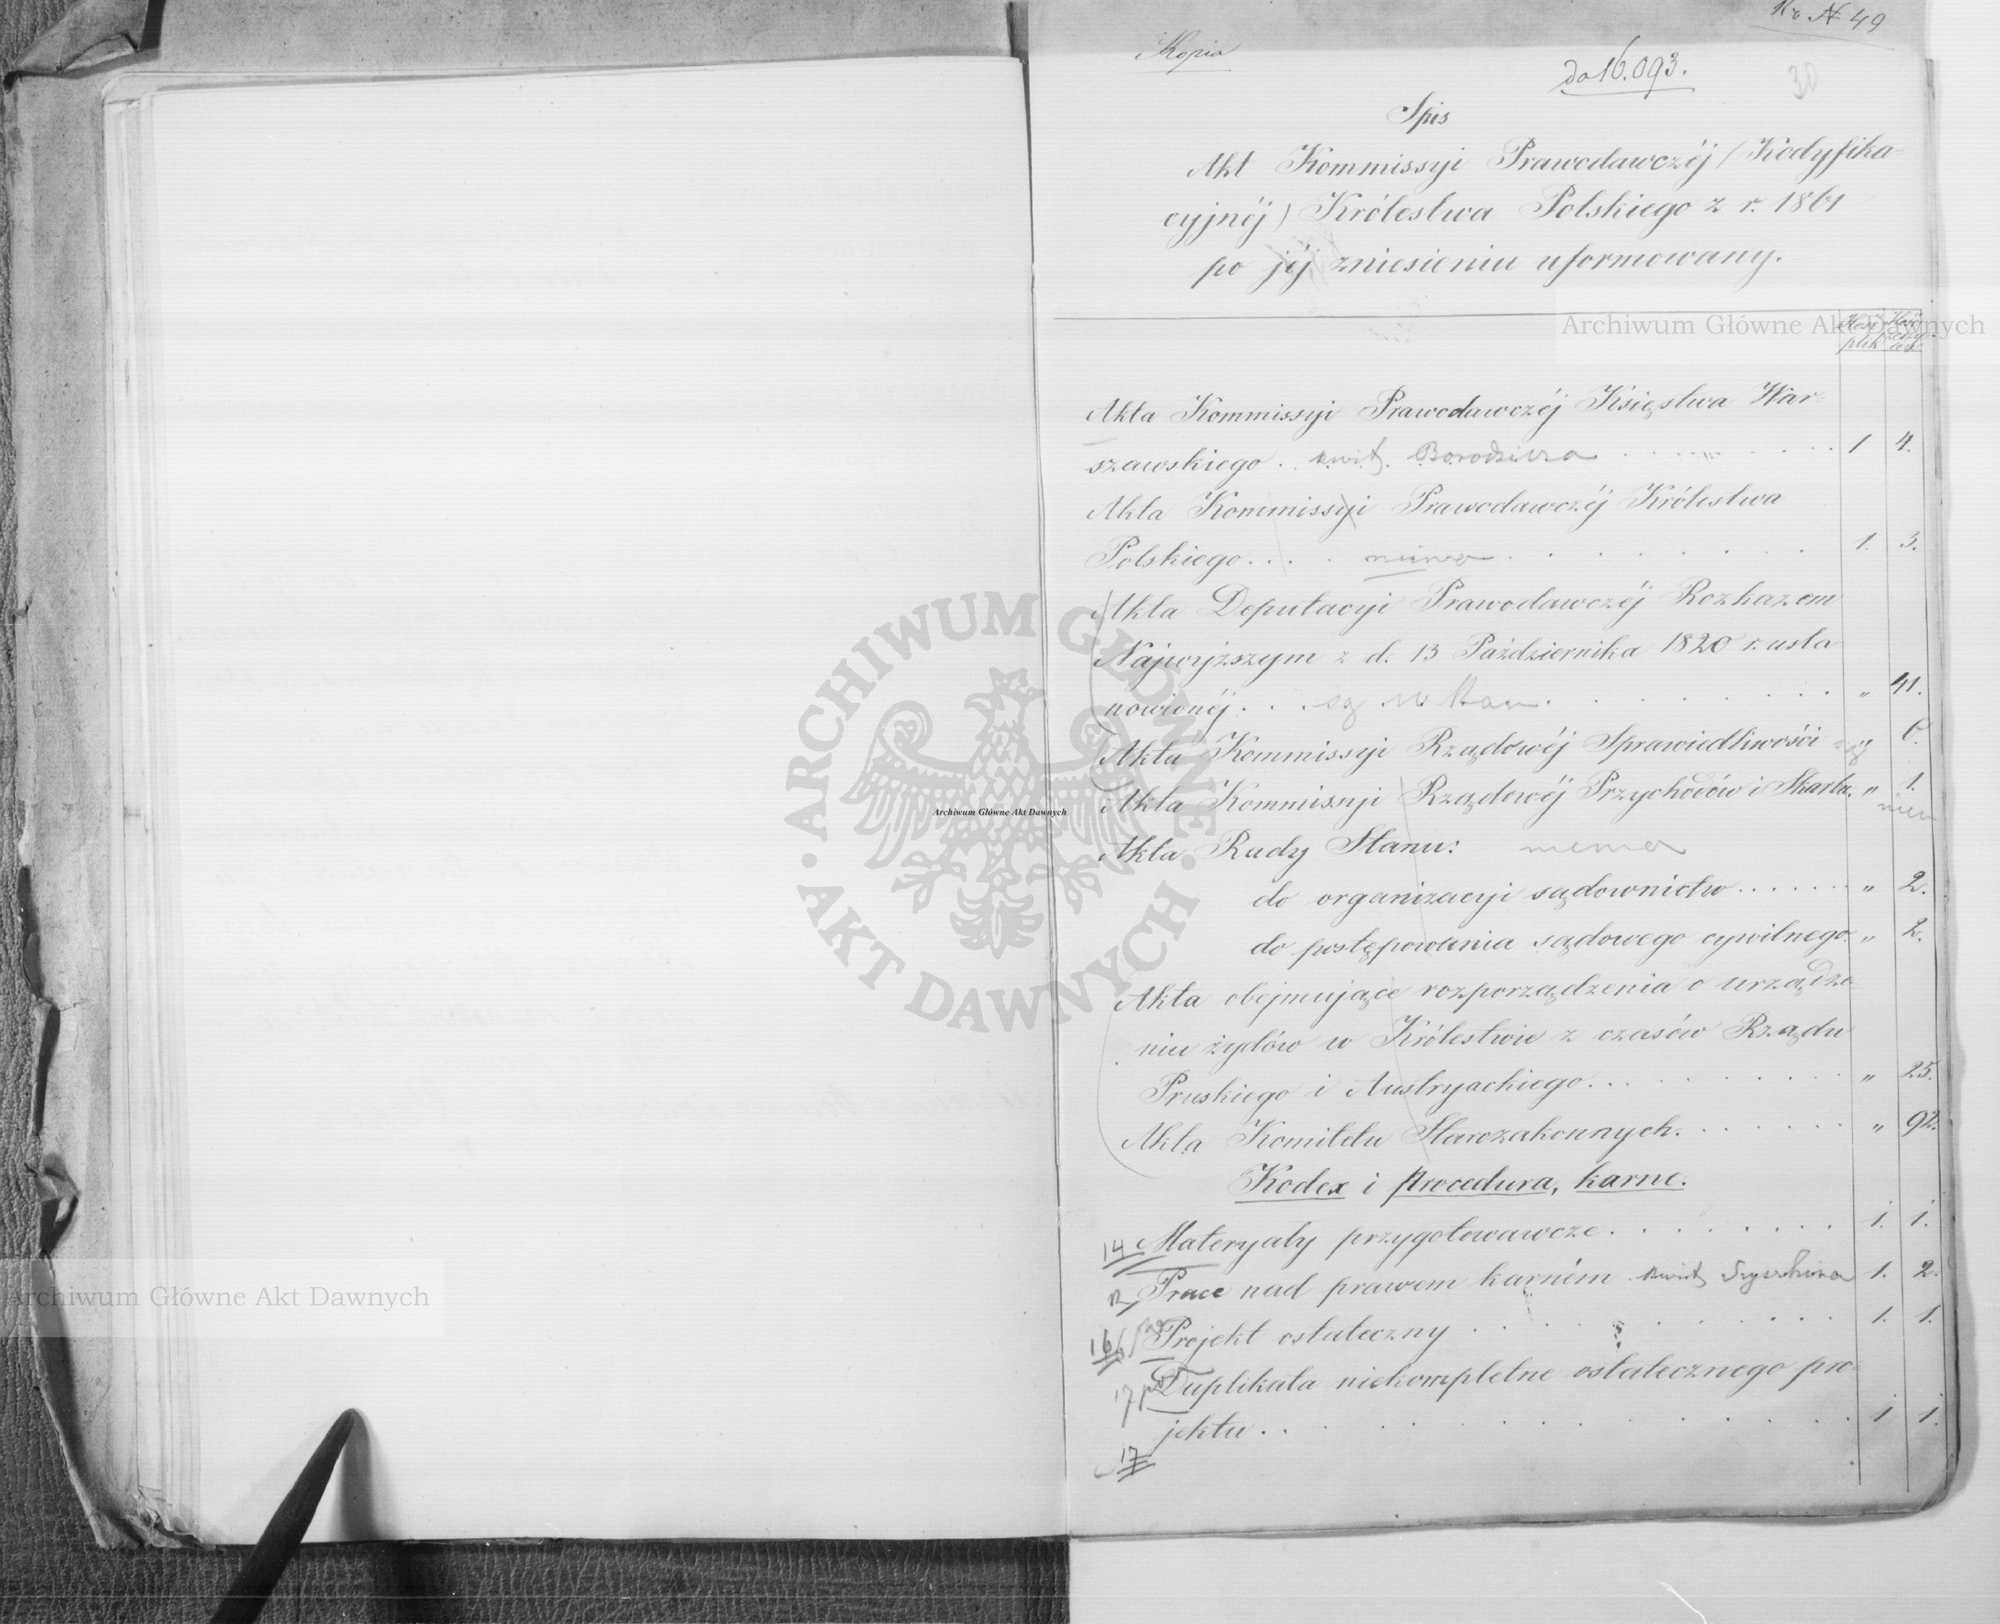 Kopia
№ 49
do 16.093.
30
Spis
Akt Kommissyi Prawodawczéj (Kodyfika-
cyjnéj) Królestwa Polskiego z r. 1861
po jéj zniesieniu uformowany.
Ilość plik
Ilość
Akta Kommissyi Prawodawczéj Księstwa War-
szawskiego . . kwit. Borodzicza . . . . . . 1 4.
Akta Kommissyi Prawodawczéj Królestwa
Polskiego . . . . niema . . . . . . . 1. 3.
Akta Deputacyi Prawodawczéj Rozkazem
Najwyższym z d. 13 Października 1820 r. usta-
nowionéj . . . są . . . . . . . „ 41.
Akta Kommissyi Rządowéj Sprawiedliwości są „ 6.
Akta Kommissyi Rządowéj Przychodów i Skarbu. „ 1.
Akta Rady Stanu: niema
do organizacyi sądownictw . . . . . . „ 2.
do postępowania sądowego cywilnego. „ 2.
Akta obejmujące rozporządzenia o urządze-
niu żydów w Królestwie z czasów Rządu
Pruskiego i Austryackiego . . . . . . . „ 25.
Akta Komitetu Starozakonnych . . . . . . . „ 92.
Kodex i procedura, karne.
14 Materyały przygotowawcze . . . . . . . 1. 1.
Prace nad prawem karném . kwit 1. 2.
16 Projekt ostateczny . . . . . . . . . 1. 1.
17 Duplikata niekompletne ostatecznego pro-
jektu . . . . . . . . . . . . 1 1.
17
Archiwum Główne Akt Dawnych
Archiwum Główne Akt Dawnych
Archiwum Główne Akt Dawnych
ARCHIWUM GŁÓWNE · AKT DAWNYCH ·